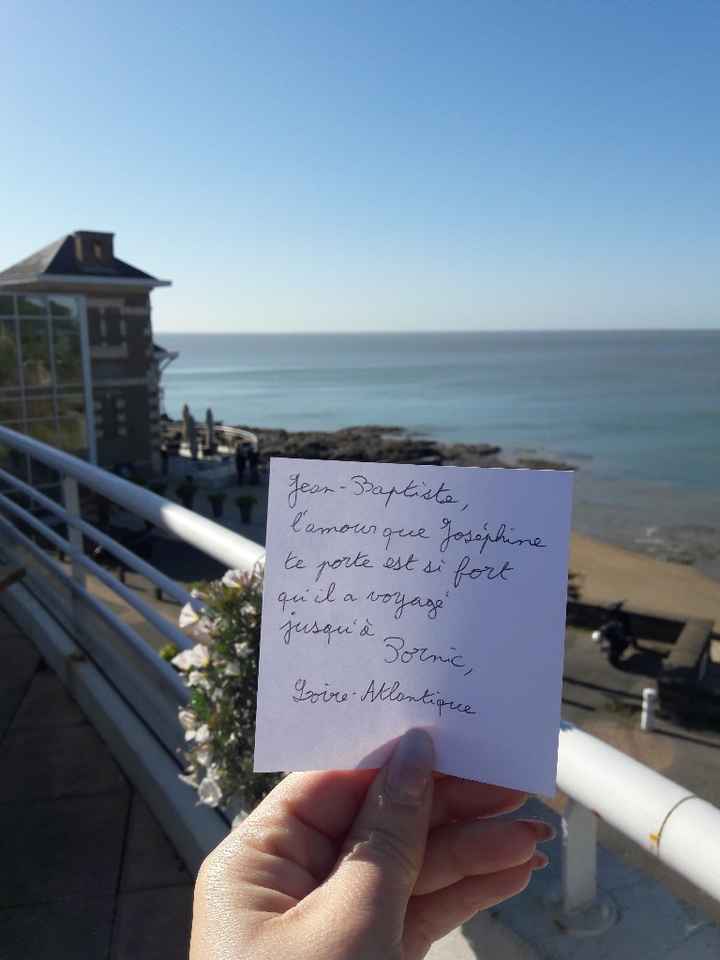 Jean-Baptiste,
l'amour que Joséphine
te porte est si fort
qu'il a voyagé
jusqu'à
Pornic,
Loire-Atlantique